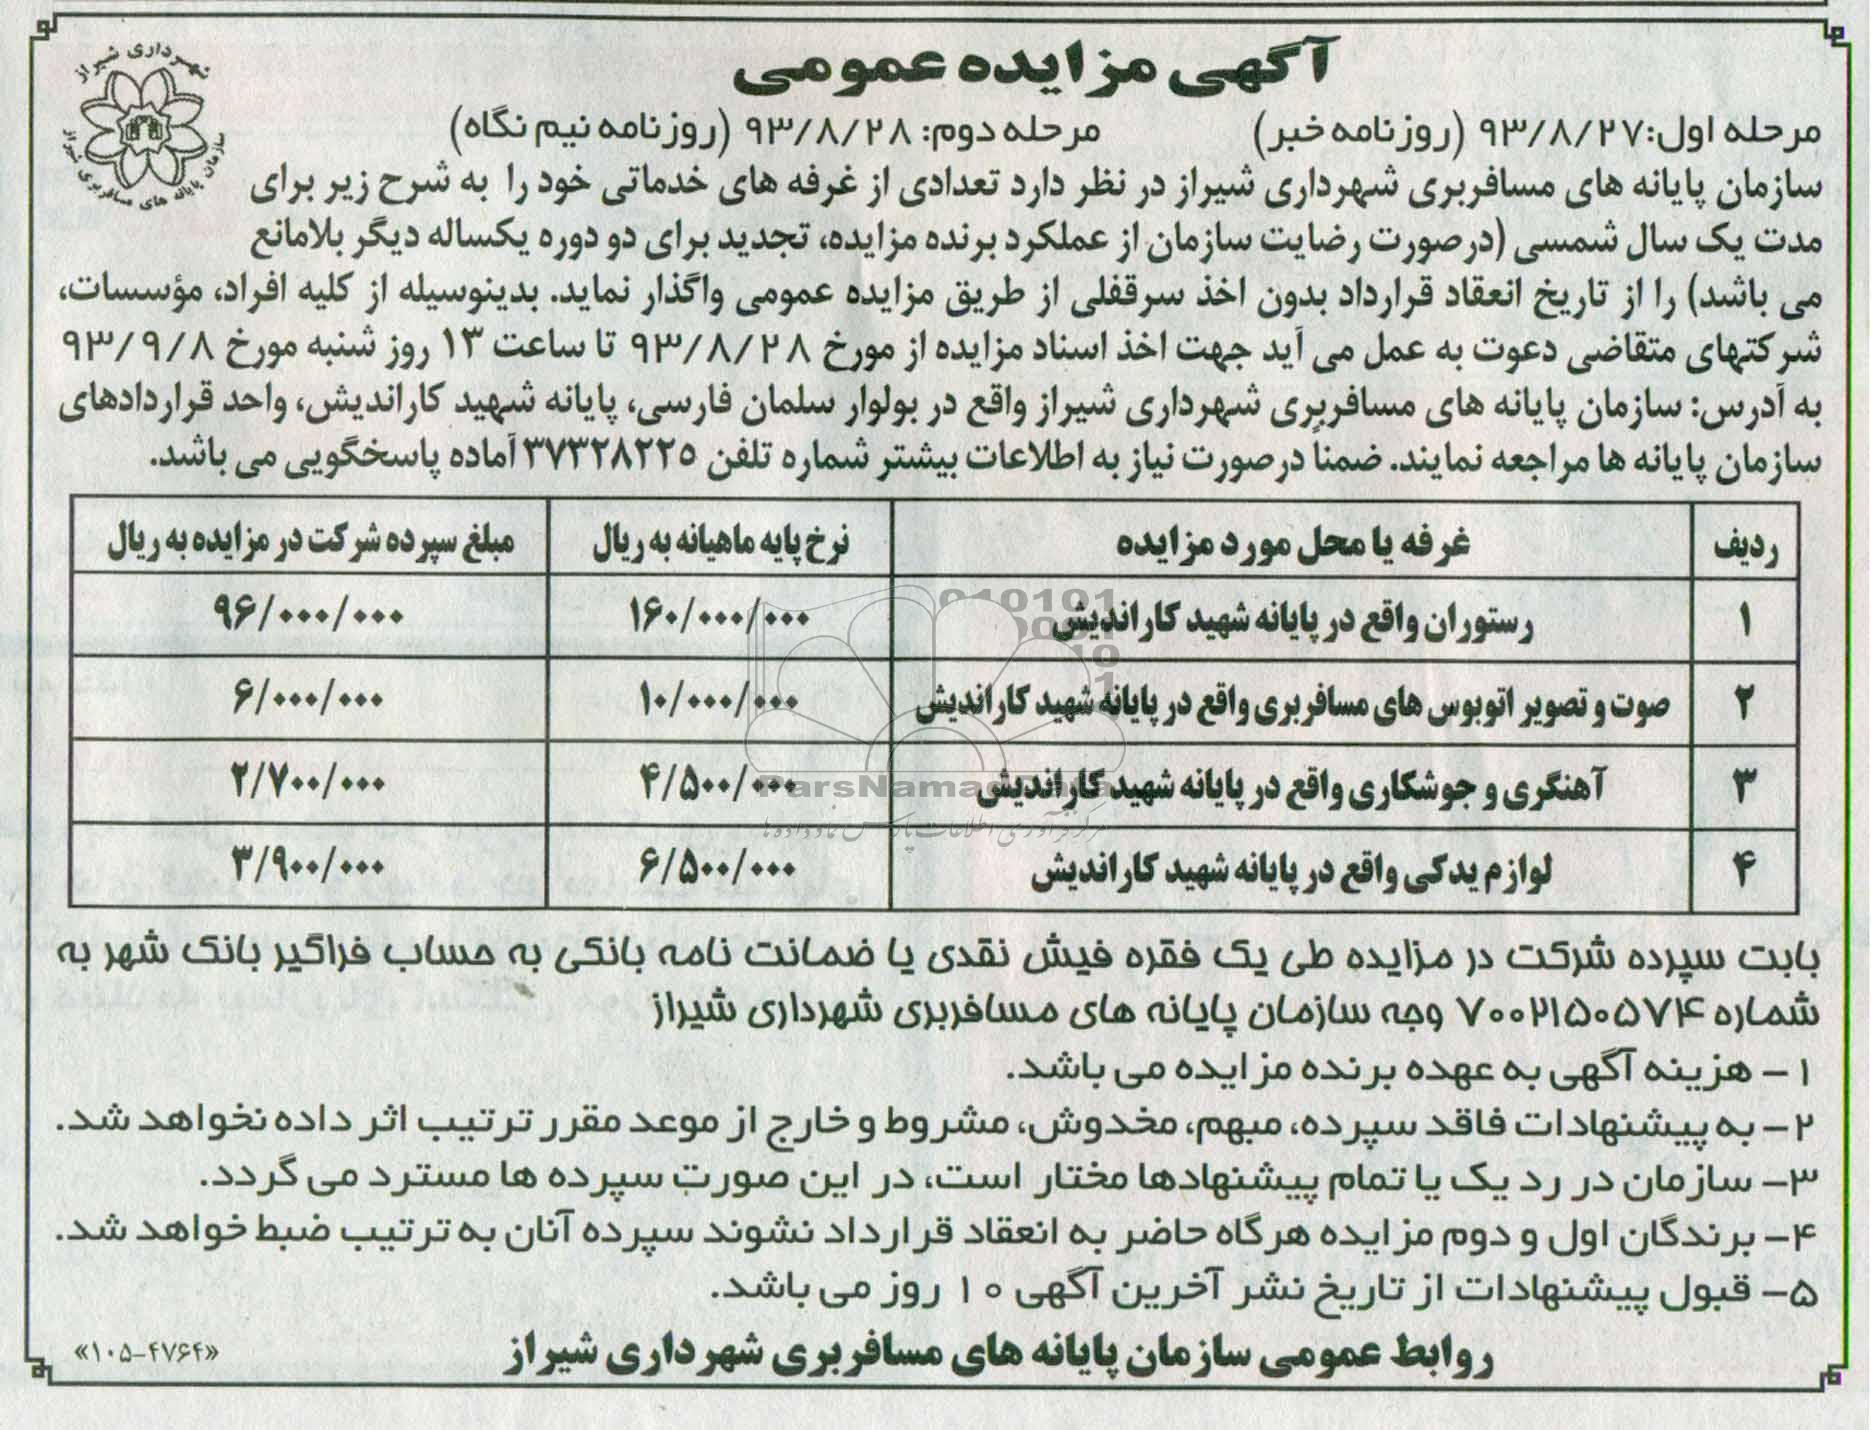 آگهی مزایده عمومی
شهرداری شیراز
سازمان پایانه های مسافربری شیراز
مرحله اول: ۹۳/۸/۲۷ (روزنامه خبر) مرحله دوم: ۹۳/۸/۲۸ (روزنامه نیم نگاه)
سازمان پایانه های مسافربری شهرداری شیراز در نظر دارد تعدادی از غرفه های خدماتی خود را به شرح زیر برای
مدت یک سال شمسی (درصورت رضایت سازمان از عملکرد برنده مزایده، تجدید برای دو دوره یکساله دیگر بلامانع
می باشد) را از تاریخ انعقاد قرارداد بدون اخذ سرقفلی از طریق مزایده عمومی واگذار نماید. بدینوسیله از کلیه افراد، مؤسسات،
شرکتهای متقاضی دعوت به عمل می آید جهت اخذ اسناد مزایده از مورخ ۹۳/۸/۲۸ تا ساعت ۱۳ روز شنبه مورخ ۹۳/۹/۸
به آدرس: سازمان پایانه های مسافربری شهرداری شیراز واقع در بولوار سلمان فارسی، پایانه شهید کاراندیش، واحد قراردادهای
سازمان پایانه ها مراجعه نمایند. ضمناً درصورت نیاز به اطلاعات بیشتر شماره تلفن ۳۷۳۲۸۲۲۵ آماده پاسخگویی می باشد.
ردیف غرفه یا محل مورد مزایده نرخ پایه ماهیانه به ریال مبلغ سپرده شرکت در مزایده به ریال
۱ رستوران واقع در پایانه شهید کاراندیش ۱۶۰/۰۰۰/۰۰۰ ۹۶/۰۰۰/۰۰۰
۲ صوت و تصویر اتوبوس های مسافربری واقع در پایانه شهید کاراندیش ۱۰/۰۰۰/۰۰۰ ۶/۰۰۰/۰۰۰
۳ آهنگری و جوشکاری واقع در پایانه شهید کاراندیش ۴/۵۰۰/۰۰۰ ۲/۷۰۰/۰۰۰
۴ لوازم یدکی واقع در پایانه شهید کاراندیش ۶/۵۰۰/۰۰۰ ۳/۹۰۰/۰۰۰
ParsNamadData
مرکز فرآوری اطلاعات پارس نماد داده ها
بابت سپرده شرکت در مزایده طی یک فقره فیش نقدی یا ضمانت نامه بانکی به حساب فراگیر بانک شهر به
شماره ۷۰۰۲۱۵۰۵۷۴ وجه سازمان پایانه های مسافربری شهرداری شیراز
۱- هزینه آگهی به عهده برنده مزایده می باشد.
۲- به پیشنهادات فاقد سپرده، مبهم، مخدوش، مشروط و خارج از موعد مقرر ترتیب اثر داده نخواهد شد.
۳- سازمان در رد یک یا تمام پیشنهادها مختار است، در این صورت سپرده ها مسترد می گردد.
۴- برندگان اول و دوم مزایده هرگاه حاضر به انعقاد قرارداد نشوند سپرده آنان به ترتیب ضبط خواهد شد.
۵- قبول پیشنهادات از تاریخ نشر آخرین آگهی ۱۰ روز می باشد.
روابط عمومی سازمان پایانه های مسافربری شهرداری شیراز
«۱۰۵-۴۷۶۴»